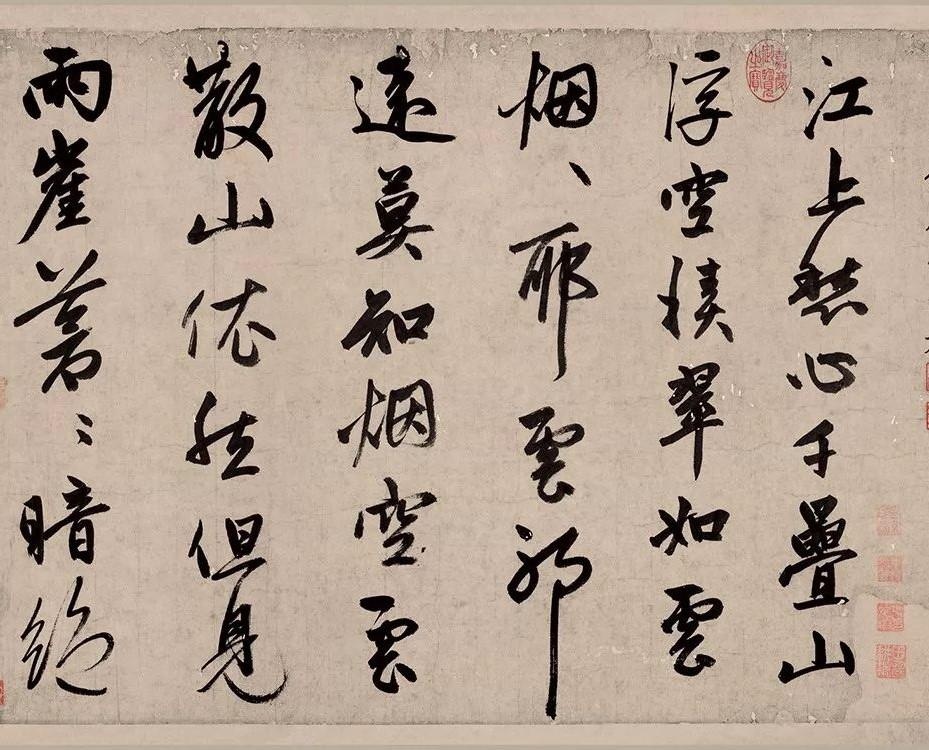 江上愁心千疊山
浮空積翠如雲
烟、耶雲耶
遠莫知烟空雲
散山依然但見
兩崖蒼〻暗絶
嘉慶御覽之寶